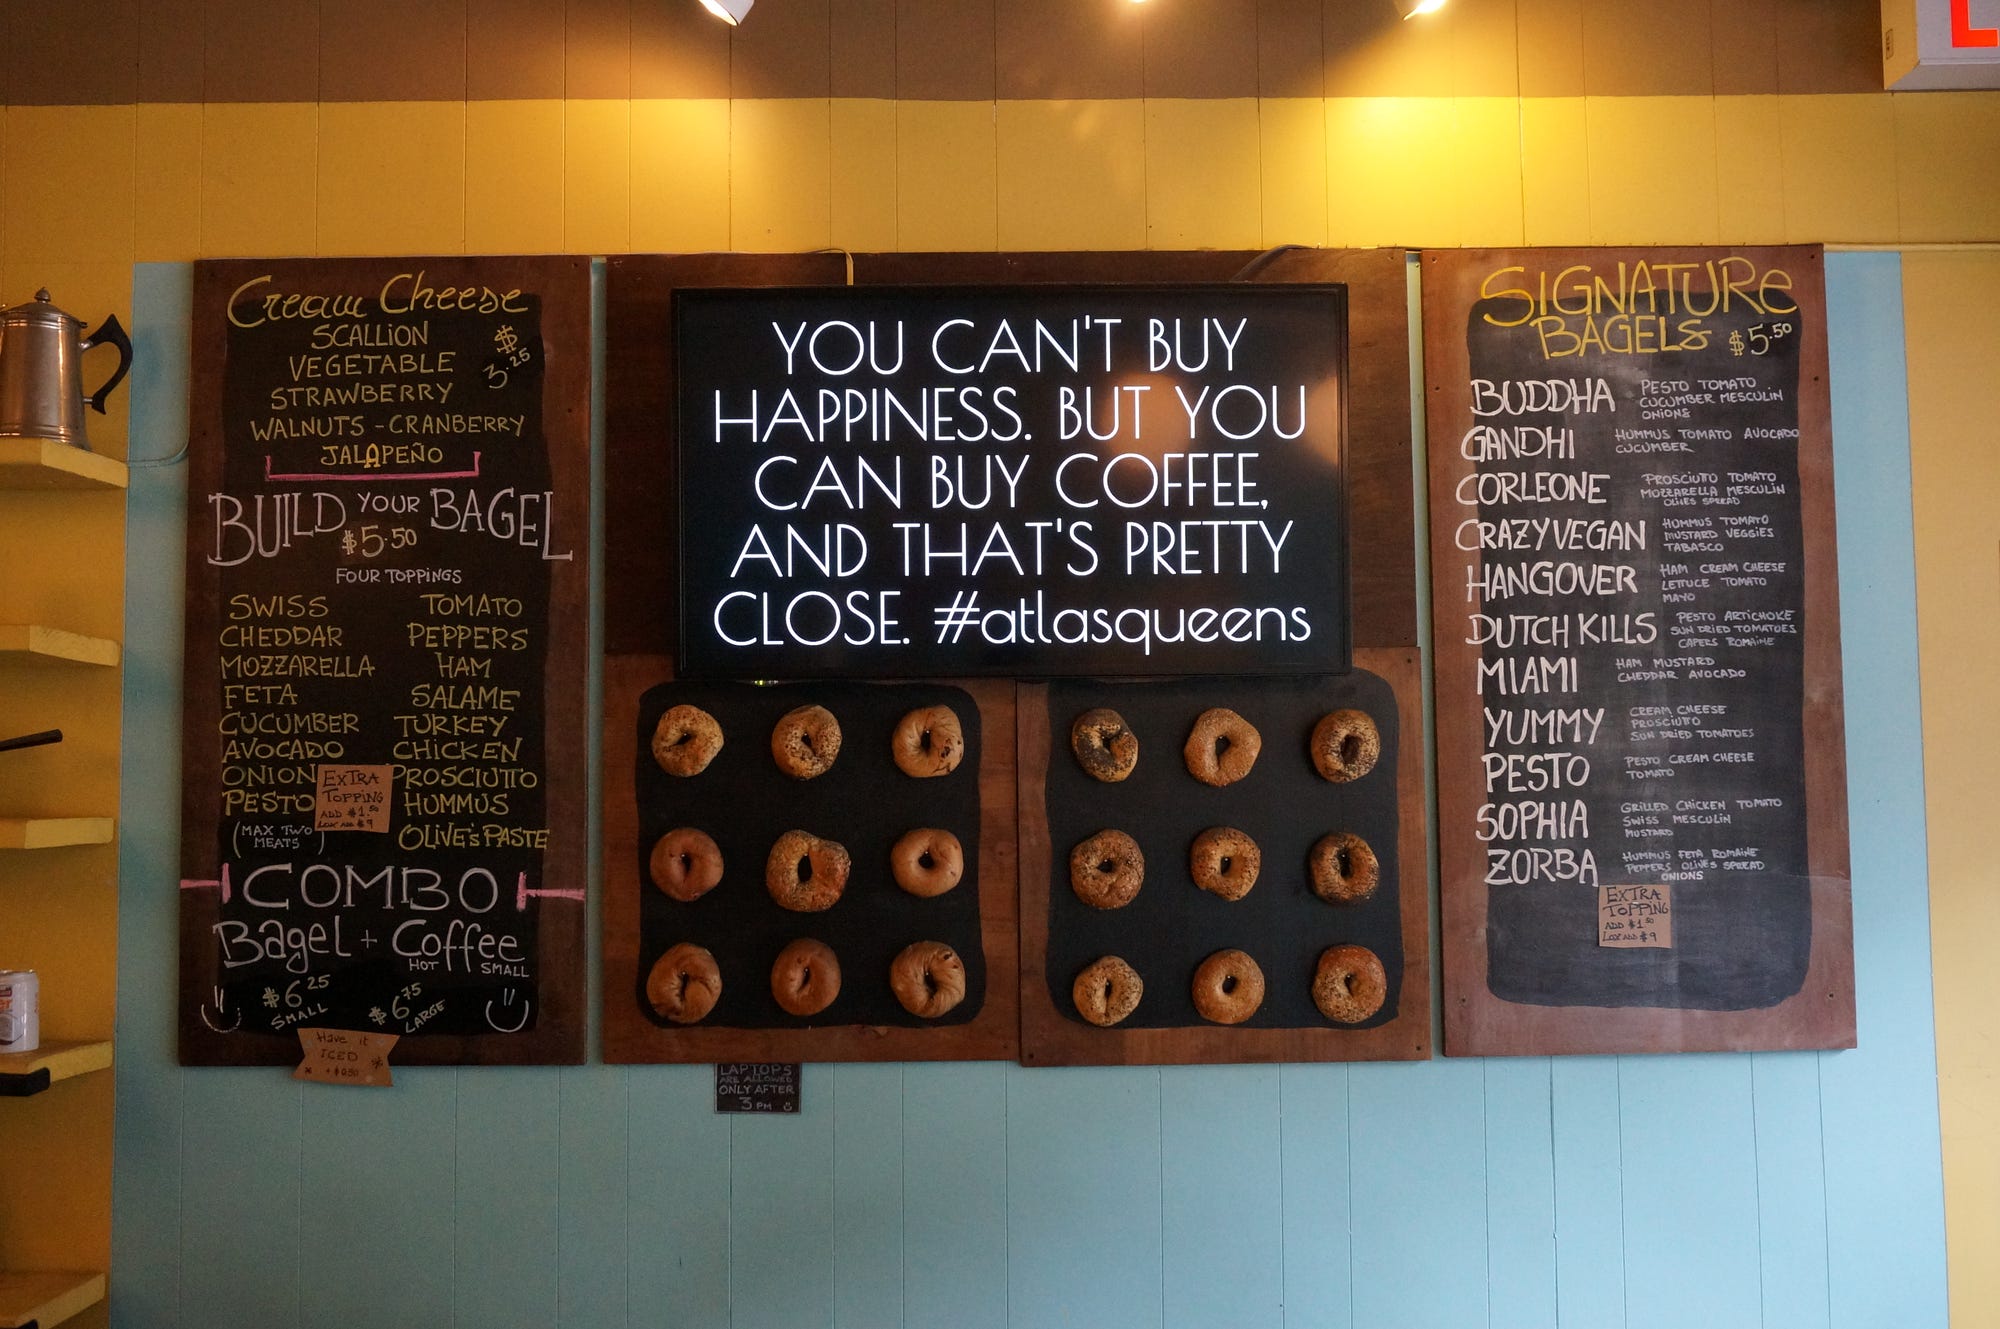 Cream Cheese
SCALLION
VEGETABLE
STRAWBERRY
WALNUTS - CRANBERRY
JALAPEÑO
$3.25
BUILD YOUR BAGEL
$5.50
FOUR TOPPINGS
SWISS
CHEDDAR
MOZZARELLA
FETA
CUCUMBER
AVOCADO
ONION
PESTO
(MAX TWO
MEATS)
TOMATO
PEPPERS
HAM
SALAME
TURKEY
CHICKEN
PROSCIUTTO
HUMMUS
OLIVE'S PASTE
EXTRA
TOPPING
ADD $1.50
LOX ADD $9
COMBO
Bagel + Coffee
HOT SMALL
$6.25
SMALL
$6.75
LARGE
Have it
ICED
+ $0.50
YOU CAN'T BUY
HAPPINESS. BUT YOU
CAN BUY COFFEE,
AND THAT'S PRETTY
CLOSE. #atlasqueens
LAPTOPS
ARE ALLOWED
ONLY AFTER
3 PM
SIGNATURE
BAGELS $5.50
BUDDHA
PESTO TOMATO
CUCUMBER MESCULIN
ONIONS
GANDHI
HUMMUS TOMATO AVOCADO
CUCUMBER
CORLEONE
PROSCIUTTO TOMATO
MOZZARELLA MESCULIN
OLIVES SPREAD
CRAZY VEGAN
HUMMUS TOMATO
MUSTARD VEGGIES
TABASCO
HANGOVER
HAM CREAM CHEESE
LETTUCE TOMATO
MAYO
DUTCH KILLS
PESTO ARTICHOKE
SUN DRIED TOMATOES
CAPERS ROMAINE
MIAMI
HAM MUSTARD
CHEDDAR AVOCADO
YUMMY
CREAM CHEESE
PROSCIUTTO
SUN DRIED TOMATOES
PESTO
PESTO CREAM CHEESE
TOMATO
SOPHIA
GRILLED CHICKEN TOMATO
SWISS MESCULIN
MUSTARD
ZORBA
HUMMUS FETA ROMAINE
PEPPERS OLIVES SPREAD
ONIONS
EXTRA
TOPPING
ADD $1.50
LOX ADD $9